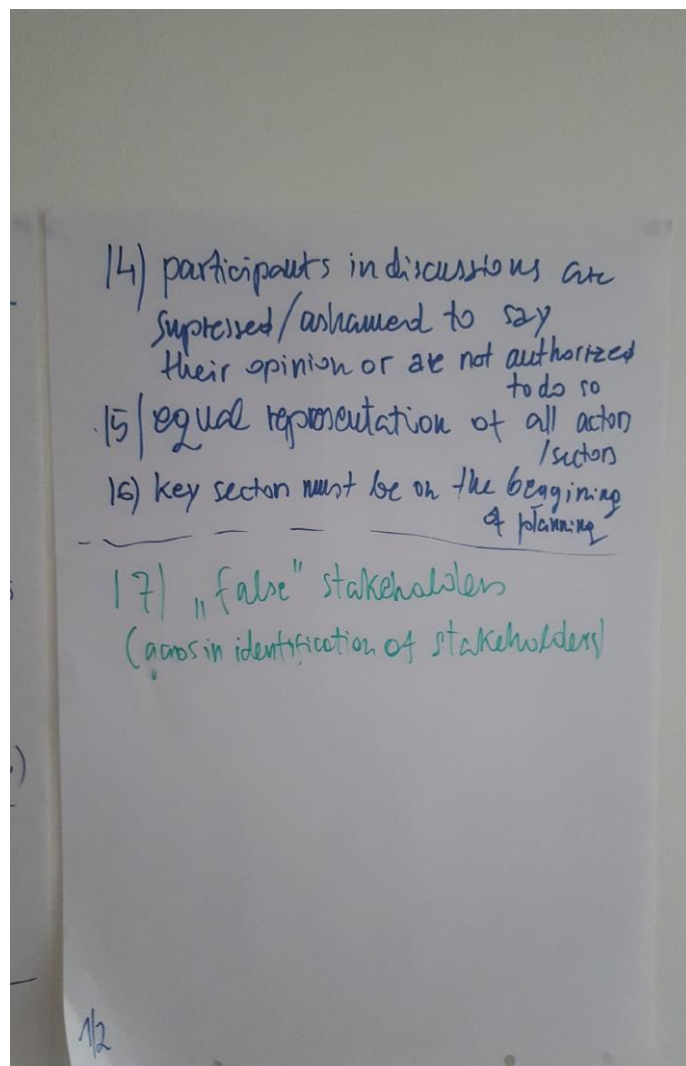 14) participants in discussions are
supressed/ashamed to say
their opinion or are not authorized
to do so
15) equal representation of all actors
/sectors
16) key sectors must be on the beggining
of planning
17) „false" stakeholders
( in identification of stakeholders)
1/2